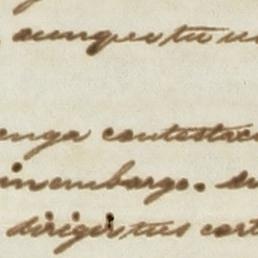 aunque tu
enga contestac
inembargo.
dirigir tus cart